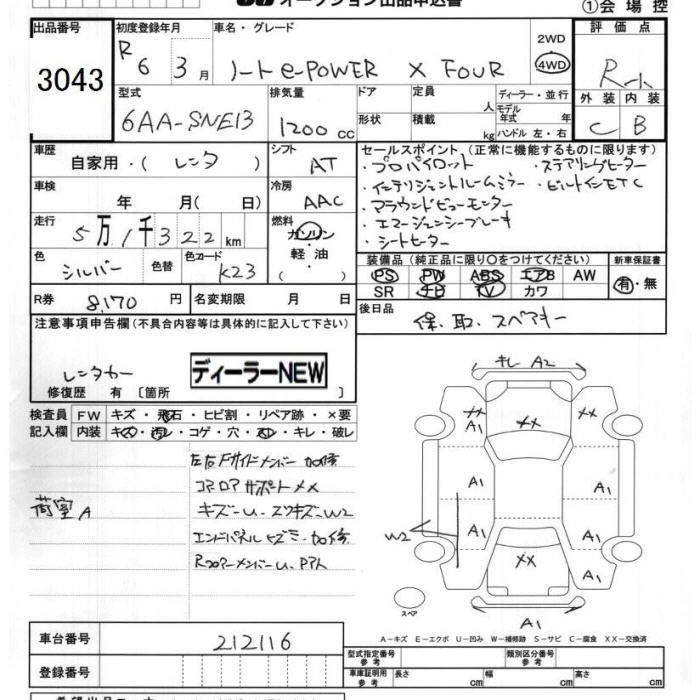 オークション出品申込書 ①会場控
出品番号 3043
初度登録年月 R6 3月
車名・グレード ノート e-POWER X FOUR
2WD
4WD
評価点 R-ト
外装 内装
C B
型式 6AA-SNE13
排気量 1200 cc
ドア
形状
定員 人
積載 kg
ディーラー・並行
モデル年式 年
ハンドル 左・右
車歴 自家用・(レンタ)
シフト AT
車検 年 月(日)
冷房 AAC
走行 5万1千322km
燃料 ガソリン・軽油・( )
色 シルバー
色替
色コード K23
R券 8,170円
名変期限 月 日
セールスポイント.(正常に機能するものに限ります)
・プロパイロット ・ステアリングヒーター
・インテリジェントルームミラー ・ビルトインETC
・アラウンドビューモニター
・エマージェンシーブレーキ
・シートヒーター
装備品(純正品に限り○をつけてください) 新車保証書
PS PW ABS エアB AW 有・無
SR ナビ TV カワ
後日品 保、取、スペアキー
注意事項申告欄(不具合内容等は具体的に記入して下さい)
レンタカー
ディーラーNEW
修復歴 有〔箇所 〕
検査員記入欄
FW キズ・飛石・ヒビ割・リペア跡・×要
内装 キズ・汚レ・コゲ・穴・スレ・キレ・破レ
荷室A
左右Fサイドメンバー 加修
コアロアサポートXX
キズ-U-スリキズ-W2
エンドパネルキズミ-加修
RフロアーメンバーU、PアトA
キレ A2
XX A1
XX
XX A1
A1
A1
A1
A1
W2
XX
A1
A1
スペア
A1
A-キズ E-エクボ U-凹み W-補修跡 S-サビ C-腐食 XX-交換済
車台番号 212116
登録番号
型式指定番号 参考
類別区分番号 参考
車庫証明用 参考
長さ cm
幅 cm
高さ cm